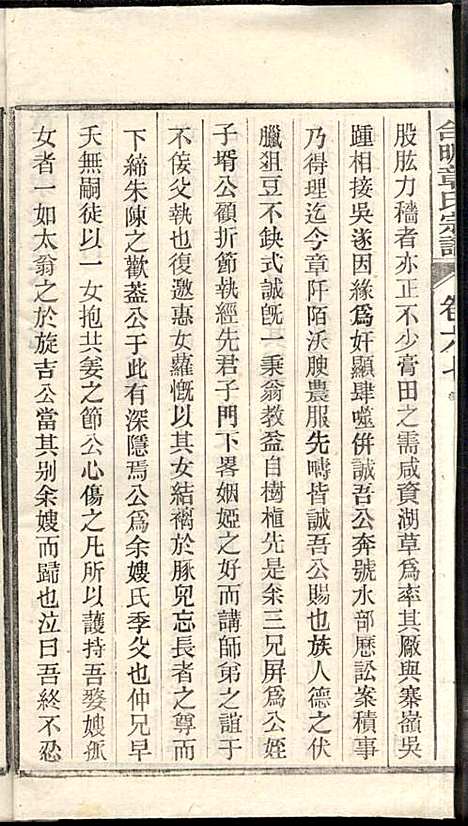 合明章氏宗譜
卷六七
股肱力穡者亦正不少膏田之需咸資湖草爲率其厰與寨嶺吳
踵相接吳遂因緣爲奸顯肆噬併誠吾公奔號水部歷訟案積事
乃得理迄今章阡陌沃腴農服先疇皆誠吾公賜也族人德之伏
臘俎豆不缺式誠旣一秉翁教益自樹植先是余三兄屏爲公姪
子壻公顧折節執經先君子門下畧姻婭之好而講師弟之誼于
不侫父執也復邀惠女蘿慨以其女結褵於豚兒忘長者之尊而
下締朱陳之歡葢公于此有深隱焉公爲余嫂氏季父也仲兄早
夭無嗣徒以一女抱共姜之節公心傷之凡所以護持吾嫠嫂孤
女者一如太翁之於旋吉公當其别余嫂而歸也泣曰吾終不忍